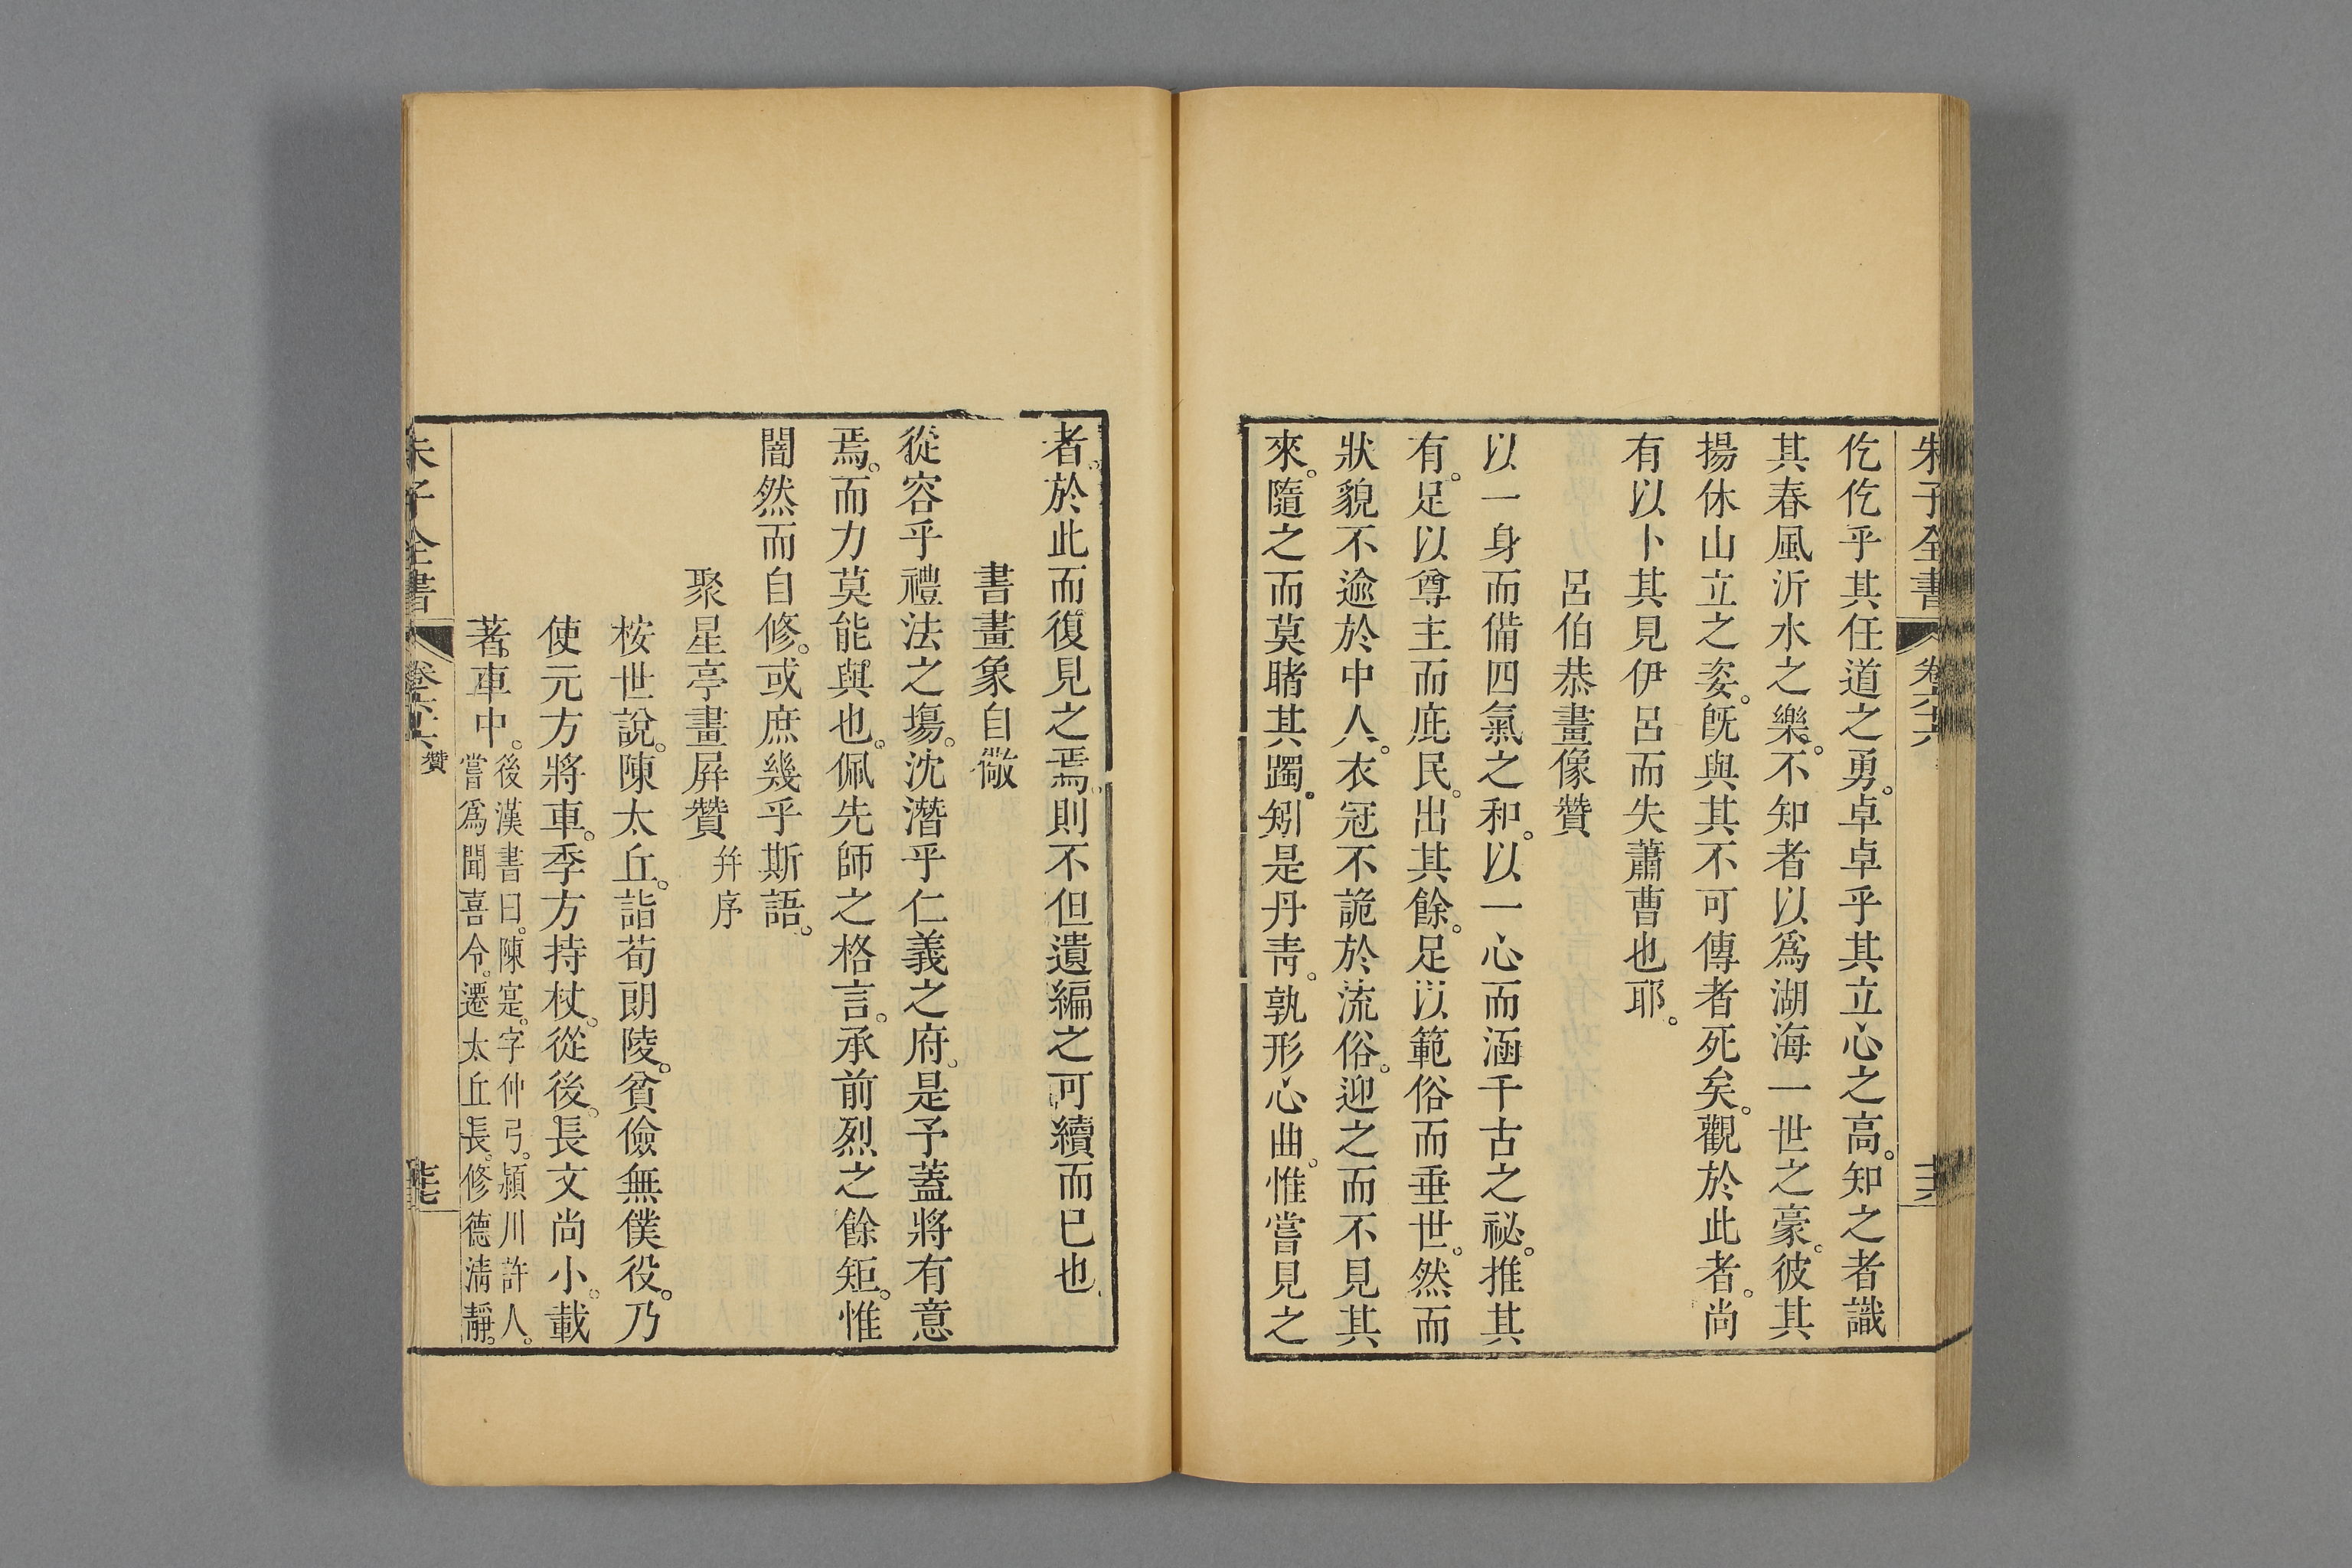 朱子全書 卷六十六
仡仡乎其任道之勇。卓卓乎其立心之高。知之者識
其春風沂水之樂。不知者以爲湖海一世之豪。彼其
揚休山立之姿。旣與其不可傳者死矣。觀於此者。尚
有以卜其見伊呂而失蕭曹也耶。
呂伯恭畫像贊
以一身而備四氣之和。以一心而涵千古之祕。推其
有。足以尊主而庇民。出其餘。足以範俗而垂世。然而
狀貌不逾於中人。衣冠不詭於流俗。迎之而不見其
來。隨之而莫睹其躅。矧是丹靑。孰形心曲。惟嘗見之
者。於此而復見之焉。則不但遺編之可續而已也。
書畫象自儆
從容乎禮法之場。沈潛乎仁義之府。是予蓋將有意
焉。而力莫能與也。佩先師之格言。承前烈之餘矩。惟
闇然而自修。或庶幾乎斯語。
聚星亭畫屛贊 幷序
桉世說。陳太丘。詣荀朗陵。貧儉無僕役。乃
使元方將車。季方持杖。從後。長文尚小。載
著。車中。
後漢書曰。陳寔。字仲弓。潁川許人。
嘗爲聞喜令。遷太丘長。修德淸靜。
朱子全書 卷六十六 贊